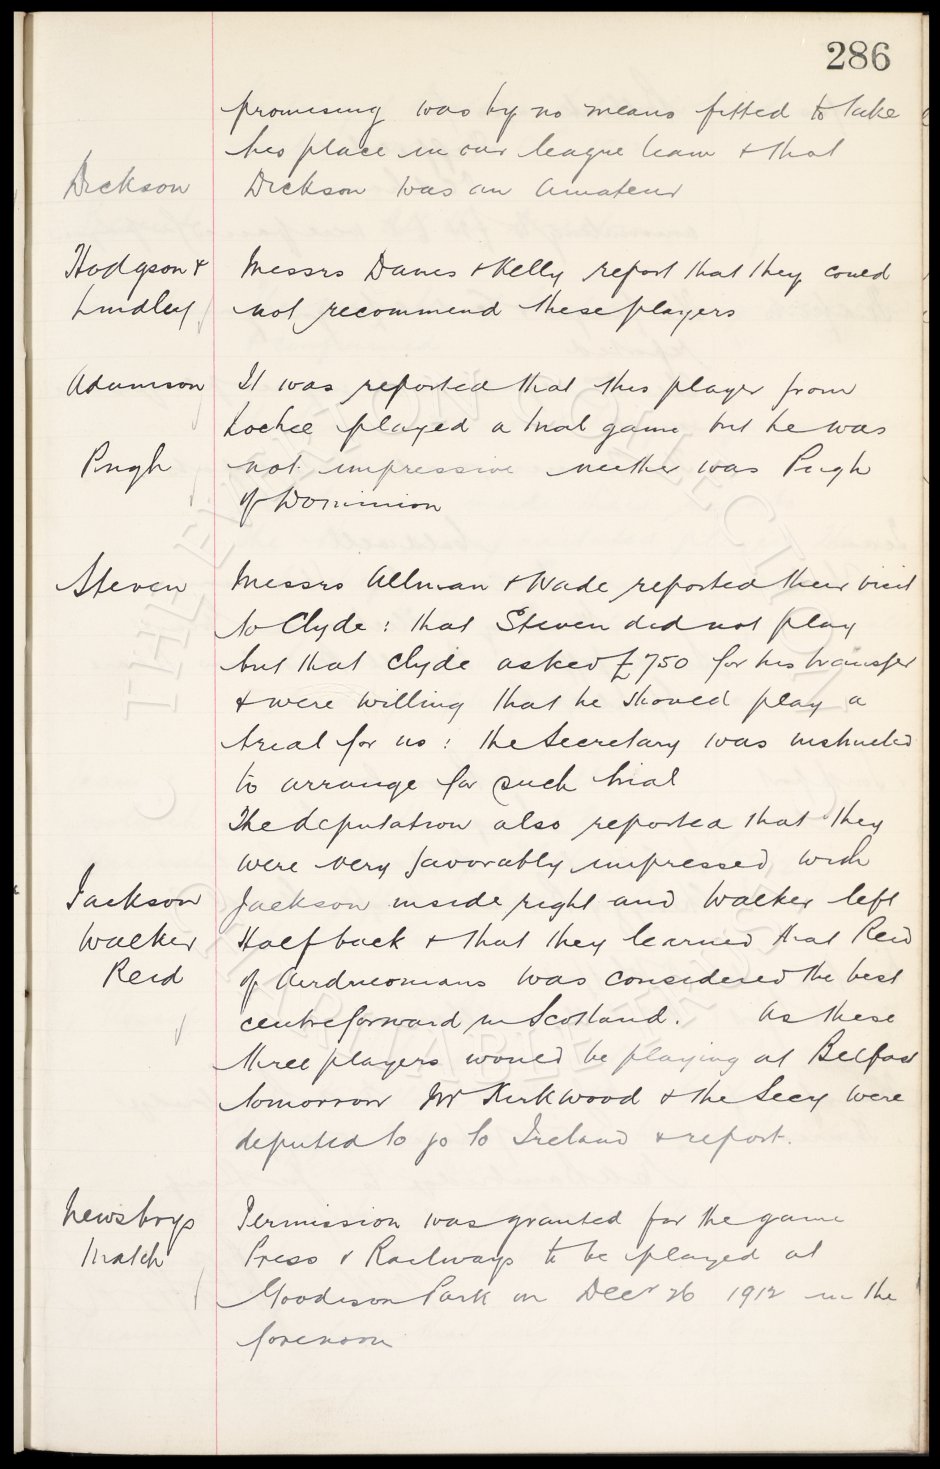 286
promising was by no means fitted to take
his place in our league team & that
Dickson Dickson was an Amateur
Hodgson & Messrs Davies & Kelly report that they could
Lindley not recommend these players
Adamson It was reported that this player from
Lochee played a trial game but he was
Pugh not impressive neither was Pugh
of Dominion
Steven Messrs Allman & Wade reported their visit
to Clyde : that Steven did not play
but that Clyde asked £750 for his transfer
& were willing that he should play a
trial for us : the Secretary was instructed
to arrange for such trial
The deputation also reported that they
were very favorably impressed with
Jackson Jackson inside right and Walker left
Walker Half back & that they learned that Reid
Reid of Airdrieonians was considered the best
centre forward in Scotland. As these
three players would be playing at Belfast
tomorrow Mr Kirkwood & the Secy were
deputed to go to Ireland & report.
Newsboys Permission was granted for the game
Match Press v Railways to be played at
Goodison Park on Decr 26 1912 in the
forenoon